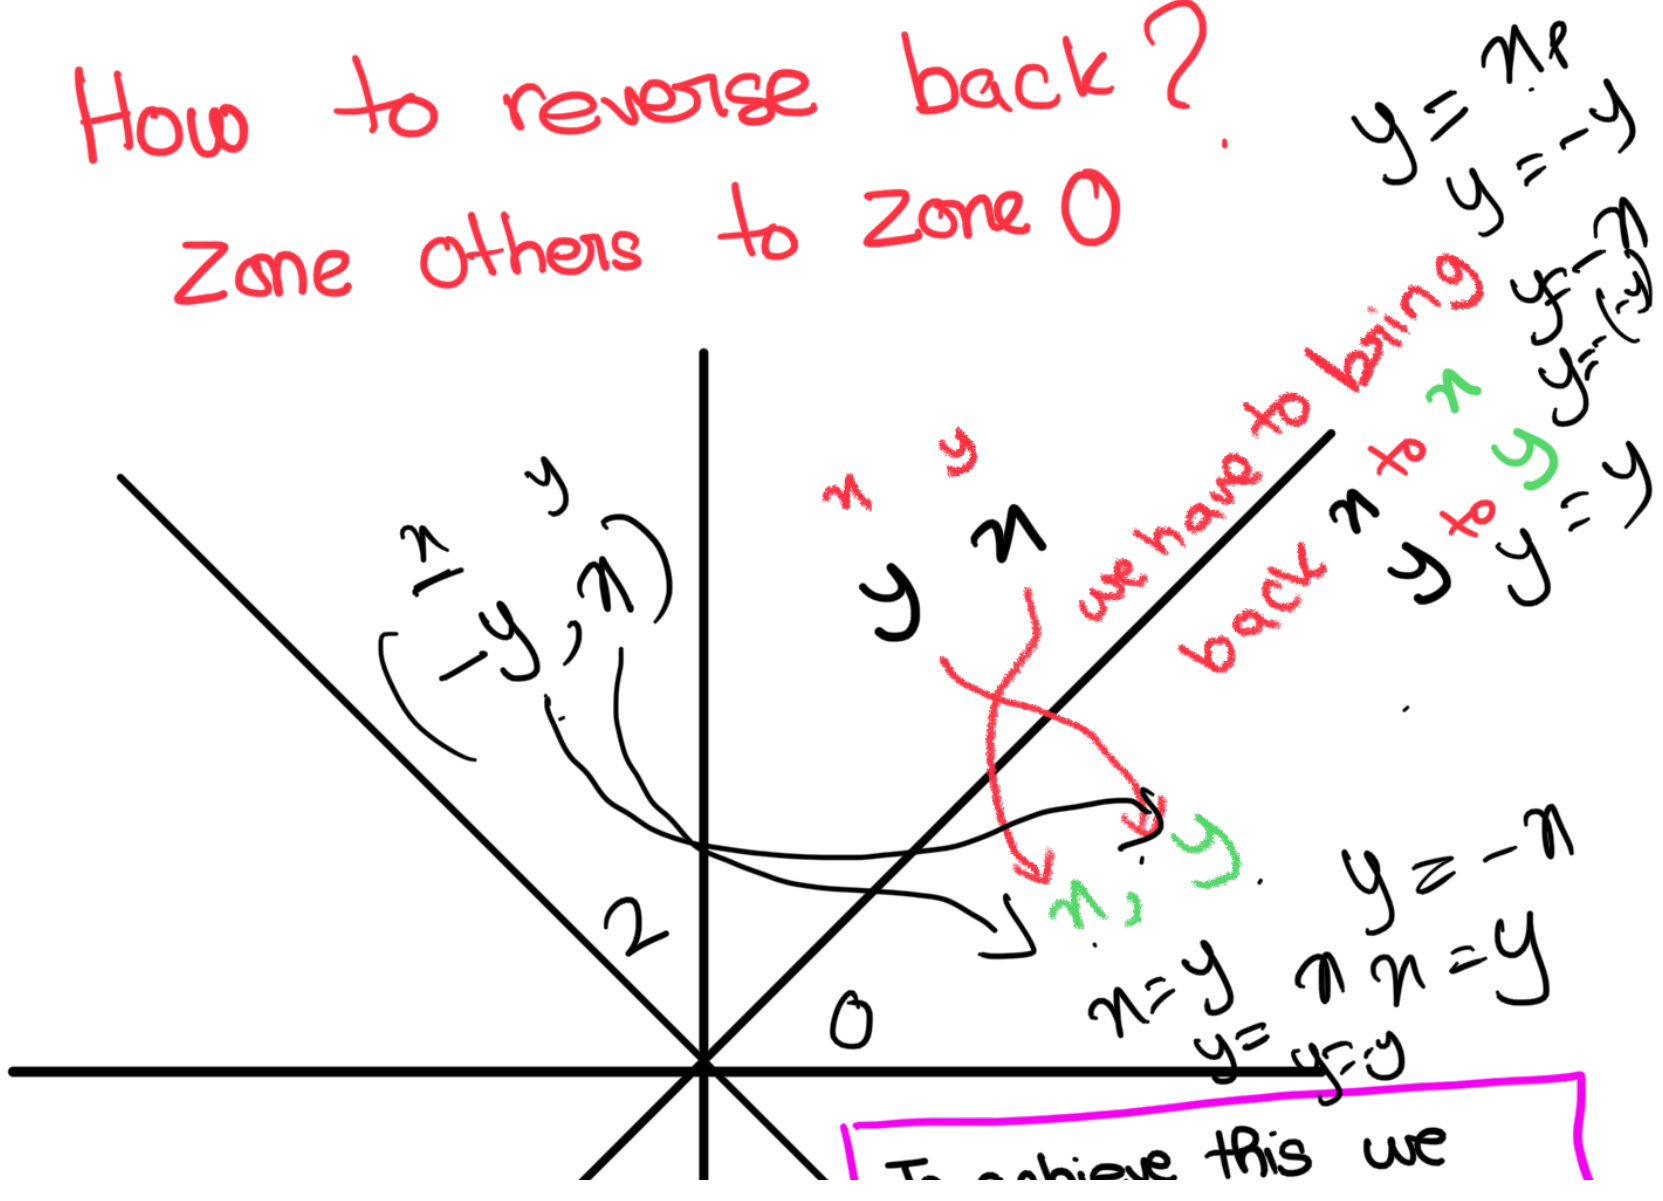 How to reverse back?
zone others to zone 0
y = x
y = -y
-x
y = -(-y)
y = y
we have to bring
back x to x
y to y
x y
y x
x y
(-y, x)
x, y
2
0
y = -x
x = y
x x = y
y =
y = -y
To achieve this we